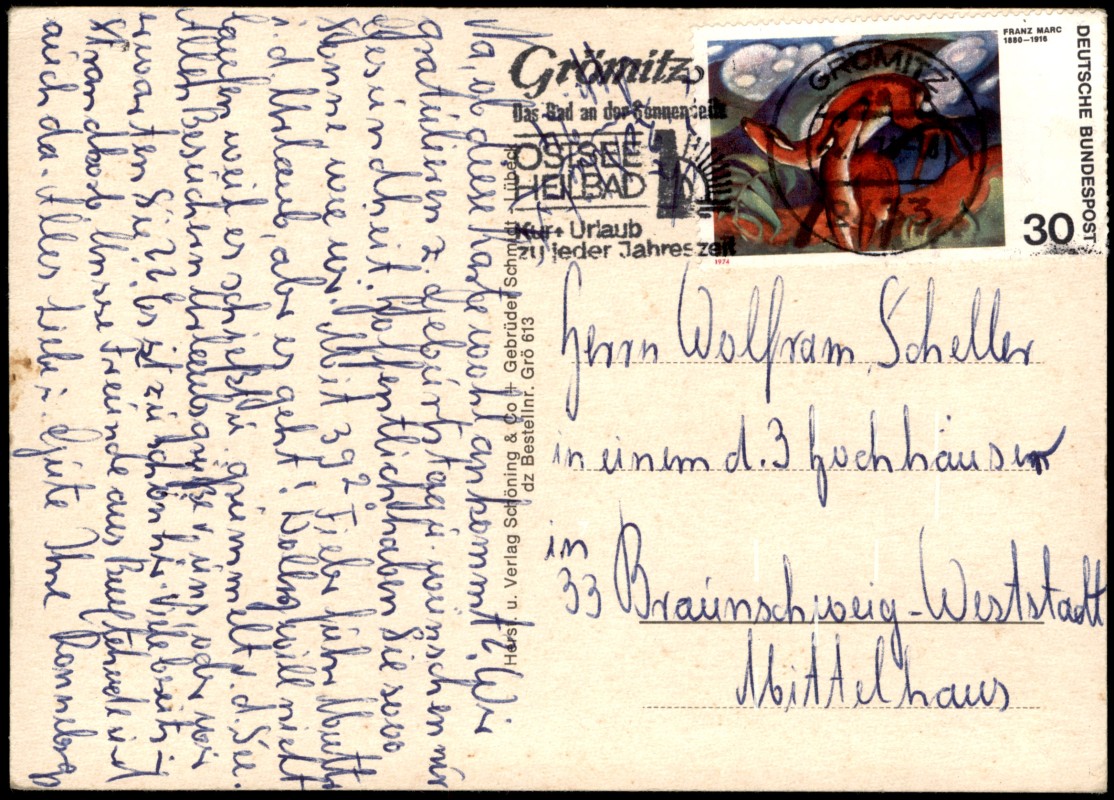 Na, ob diese Karte wohl ankommt? Wir
gratulieren z. Geburtstag u. wünschen nur
Gesundheit. Hoffentlich haben Sie sooo
Sonne, wie wir. Mit 39² Fieber fuhr Mutti
i. d. Urlaub, aber es geht! will nicht
laufen, weil es schießt u. grimmelt v. d. See.
Allen Besuchern Urlaubsgrüße v. uns, oder wo
erwarten Sie ? Es ist zu schön hier. Viele bereits i.
Strandkorb. Unsere Freunde aus sind
auch da. Alles Liebe u. Gute Ihre
Grömitz
Das Bad an der Sonnenseite
OSTSEE
HEILBAD
Kur + Urlaub
zu jeder Jahreszeit
Horst u. Verlag Schöning & Co + Gebrüder Schmidt - Lübeck
dz Bestellnr. Grö 613
FRANZ MARC
1880-1916
DEUTSCHE BUNDESPOST
30
1974
GRÖMITZ
Herrn Wolfram Scheller
in einem d. 3 Hochhäuser
in
33 Braunschweig-Weststadt
Mittelhaus